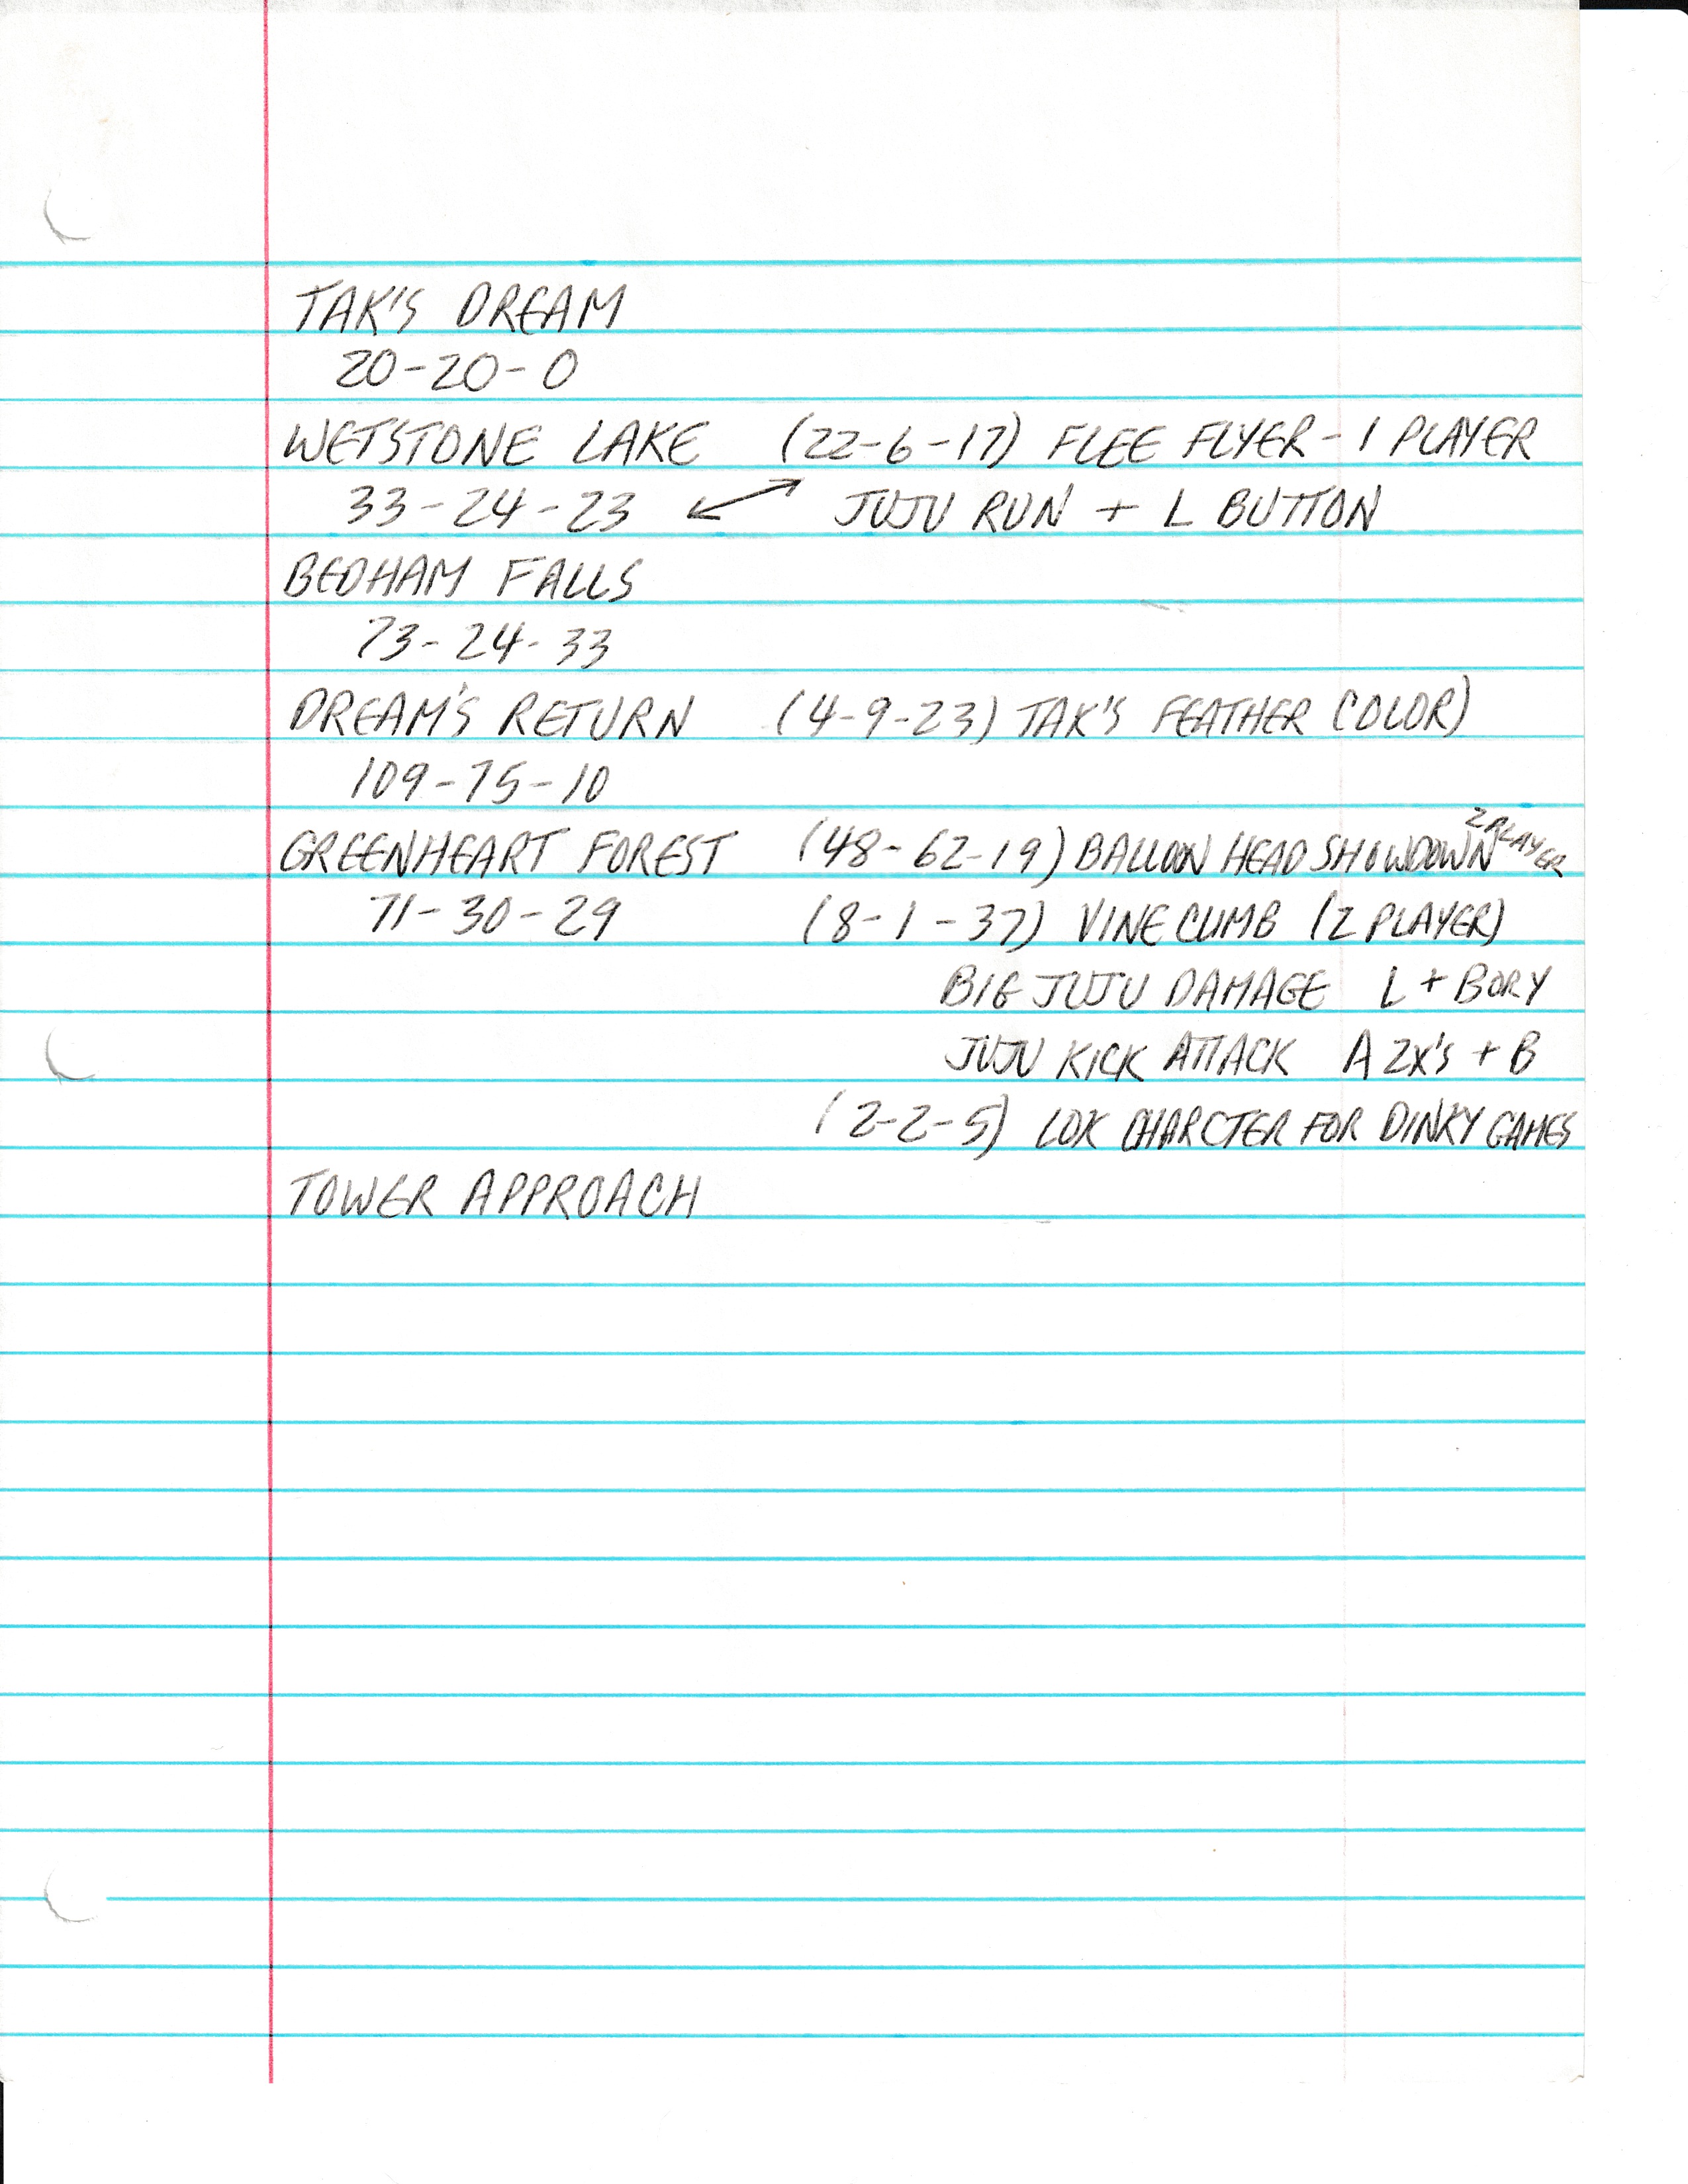 TAK'S DREAM
20-20-0
WETSTONE LAKE (22-6-17) FLEE FLYER - 1 PLAYER
33-24-23 ↙↗ JUJU RUN + L BUTTON
BEDHAM FALLS
73-24-33
DREAM'S RETURN (4-9-23) TAK'S FEATHER COLOR)
109-75-10
GREENHEART FOREST (48-62-19) BALLOON HEAD SHOWDOWN 2 PLAYER
71-30-29 (8-1-37) VINE CLIMB (2 PLAYER)
BIG JUJU DAMAGE L + B OR Y
JUJU KICK ATTACK A 2X'S + B
(2-2-5) LOK CHARCTER FOR DINKY GAMES
TOWER APPROACH